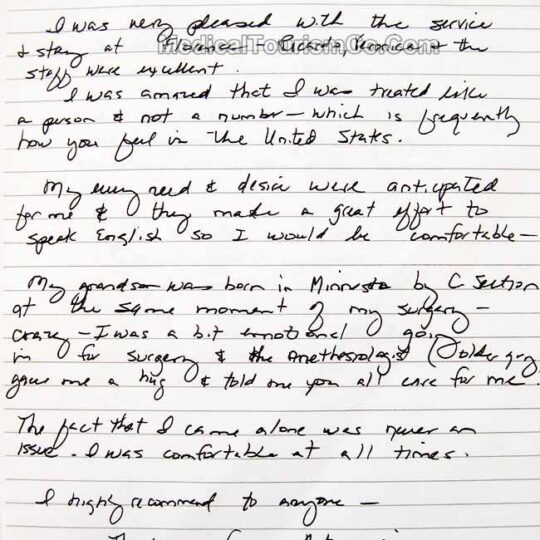 I was very pleased with the service
& stay at Florence - Ricardo, Veronica & the
MedicalTourismCo.Com
staff were excellent.
I was amazed that I was treated like
a person & not a number - which is frequently
how you feel in the United States.
My every need & desire were anticipated
for me & they made a great effort to
speak English so I would be comfortable -
My grandson was born in Minnesota by C Section
at the same moment of my surgery -
crazy - I was a bit emotional going
in for surgery & the Anethesiologist (older guy
gave me a hug & told me you all care for me.
The fact that I came alone was never an
issue. I was comfortable at all times.
I highly recommend to anyone -